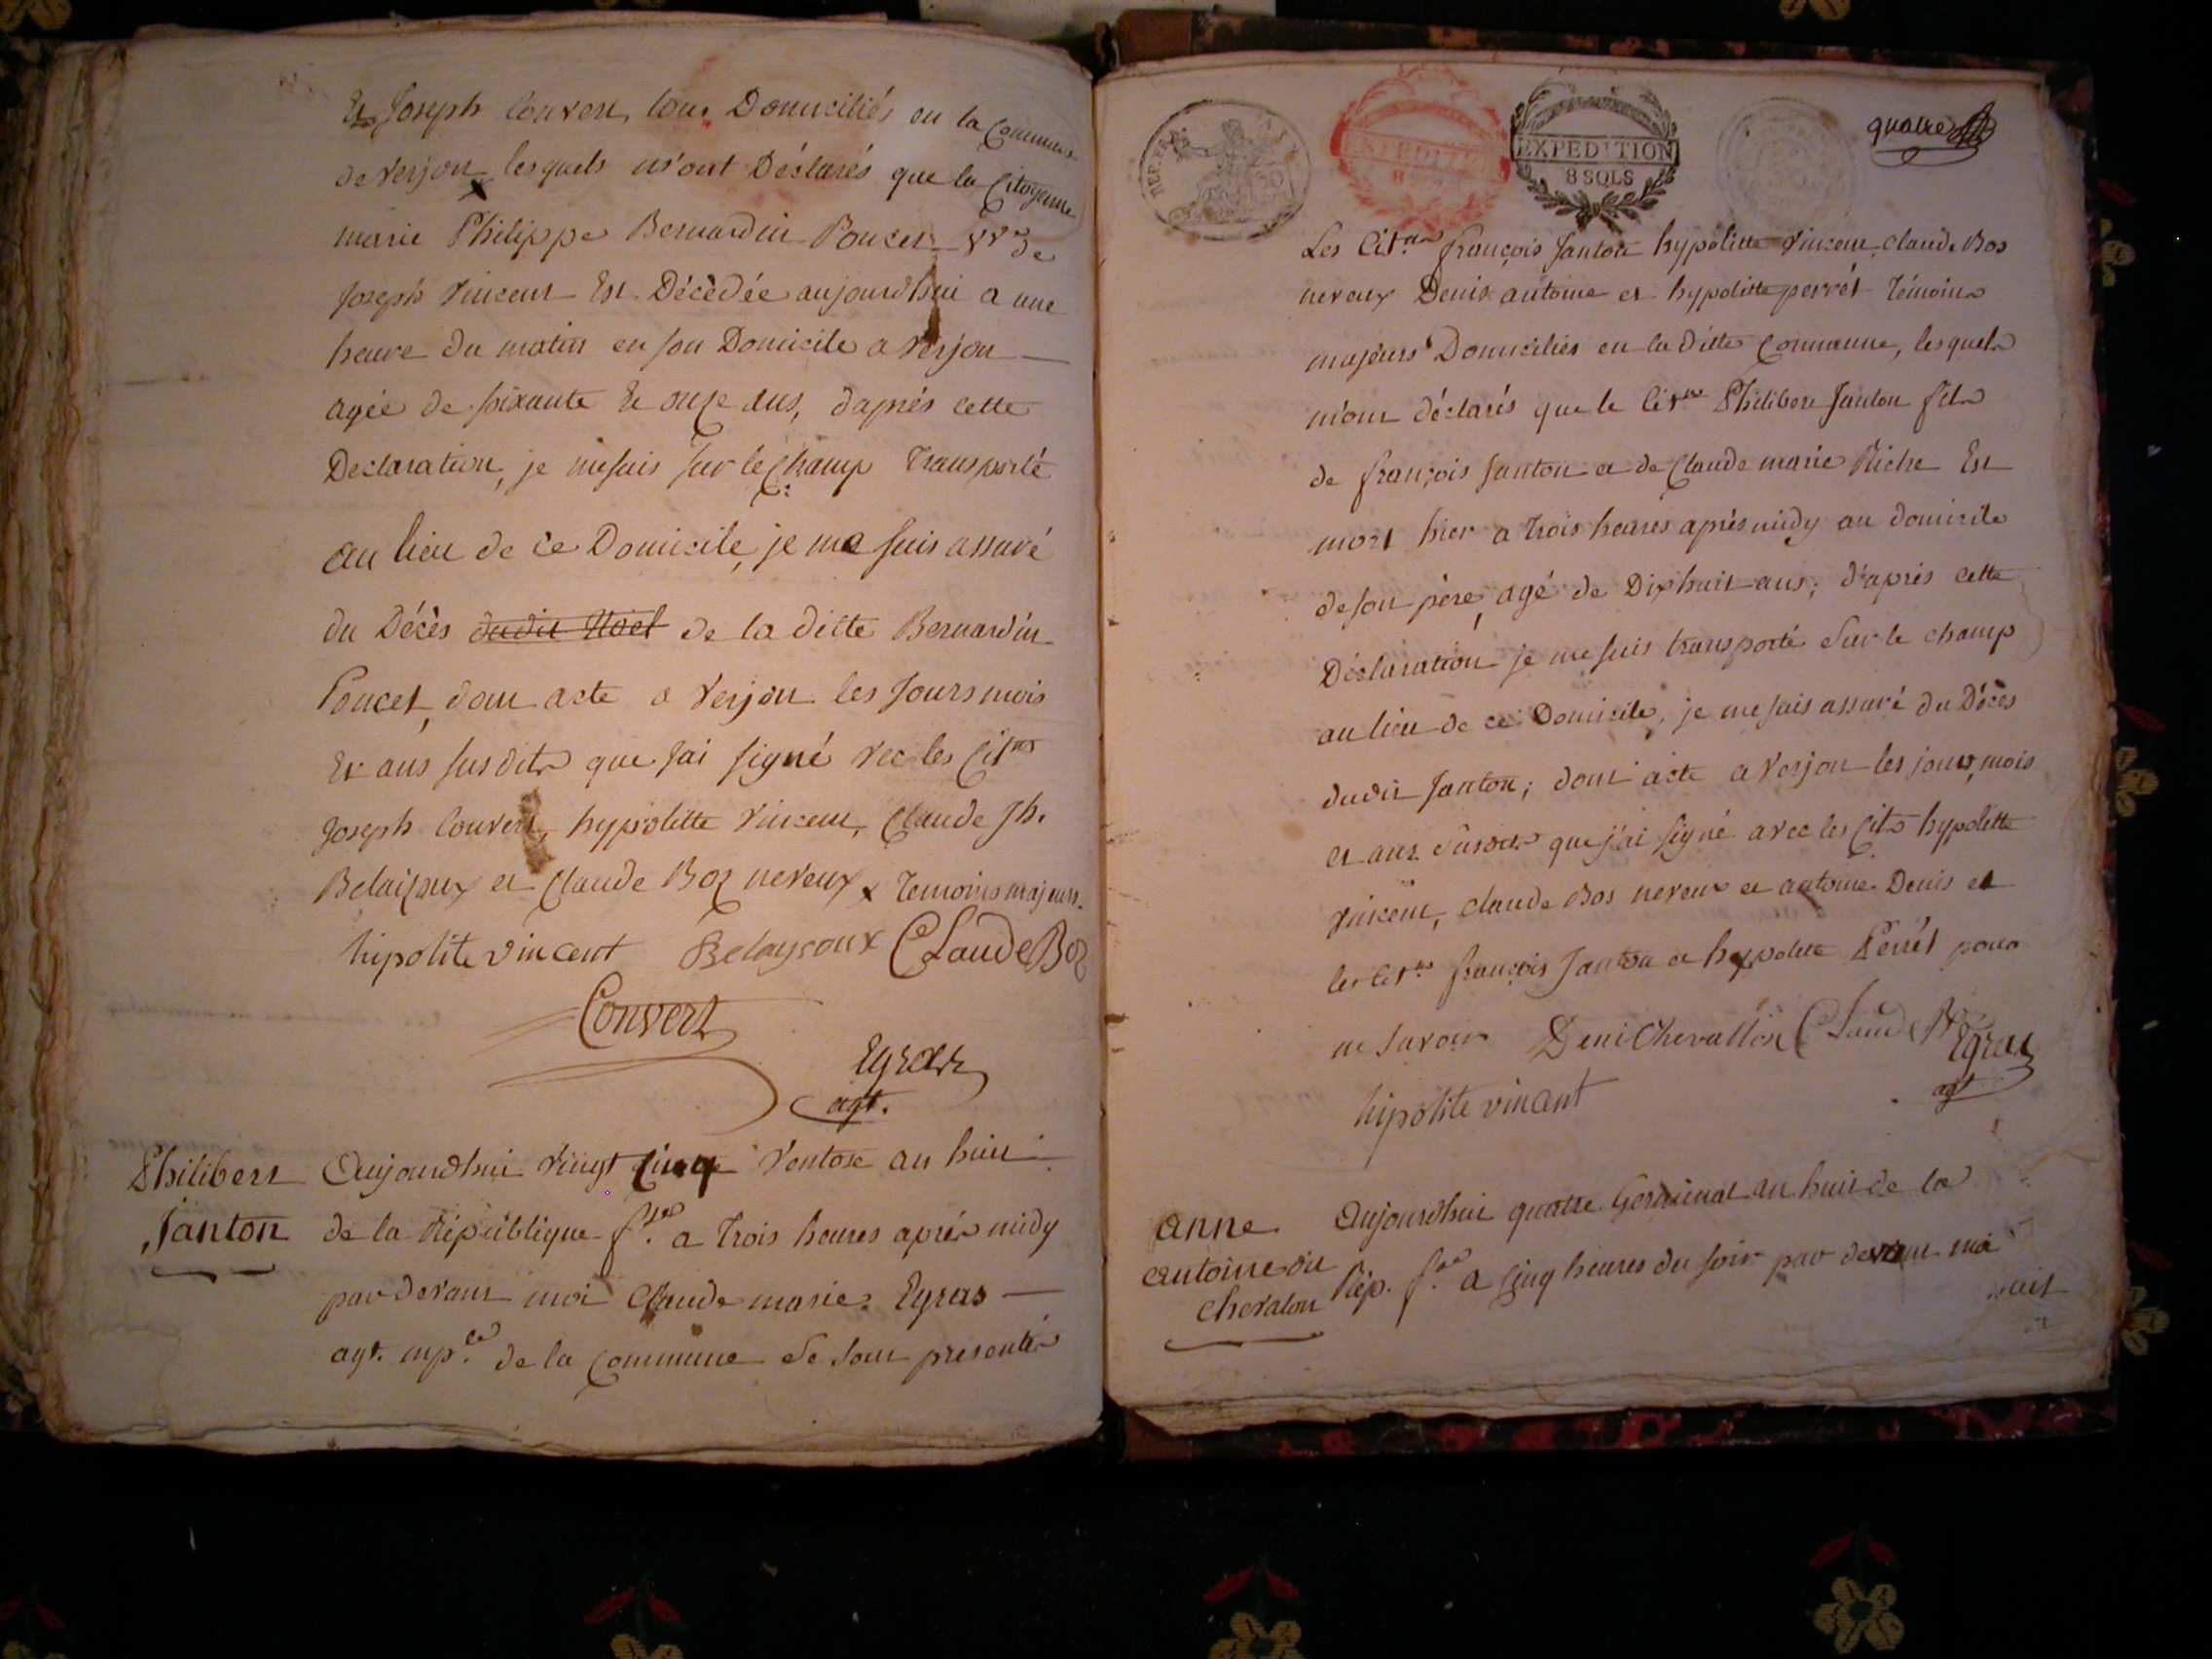 Et Joseph Convert, tous Domiciliés en la Commune
de Verjon lesquels m'ont Déclarés que la Citoyenne
marie Philippe Bernardin Poncet Vve de
Joseph Vincent Est Décèdée aujourdhui a une
heure du matin en son Domicile a Verjon
agée de soixante Et onze ans, d'aprés cette
Declaration, je me suis sur le Champ Transporté
au lieu de ce Domicile, je me suis assuré
du Décès dudit Noël de la ditte Bernardin
Poncet, dont acte a Verjon les Jours mois
Et ans susdits que J'ai signé vec les Citns
Joseph Convert, hypolitte Vincent, Claude Jh.
Belaisoux et Claude Boz neveux x Temoins majeurs.
hipolite vincent Belaysoux Claude Boz
Convert
Egras
agt.
Philibert
Janton
Aujourdhui vingt cinq Ventose an huit
de la République fse a trois heures aprés midy
par devant moi Claude marie Egras
agt. mpal de la Commune se sont presentés
REP. FRA.
EXPEDITION
8 SOLS
quatre
Les Citns françois Janton hypolitte Vincent, Claude Bos
neveux Denis antoine et hypolitte perrét Témoins
majeurs Domiciliés en la ditte Commune, lesquels
m'ont déclarés que le Citen Philibert Janton fils
de françois Janton et de Claude marie Riche Est
mort hier a trois heures aprés midy au domicile
de son père, agé de Dixhuit ans; d'aprés cette
Déclaration je me suis transporté sur le champ
au lieu de ce Domicile, je me suis assuré du Décès
dudit Janton; dont acte a Verjon les jour, mois
et ans susdits que j'ai signé avec les Cits hypolitte
Vincent, Claude Bos neveux et antoine Denis et
les Citns françois Janton et hypolitte Perrét pour
ne savoir Deni Chevallon Claude Boz
Egras
agt
hipolite vincent
anne
antoine du
Chevalon
Aujourdhui quatre Germinal an huit de la
Rép. fse a cinq heures du soir par devant moi